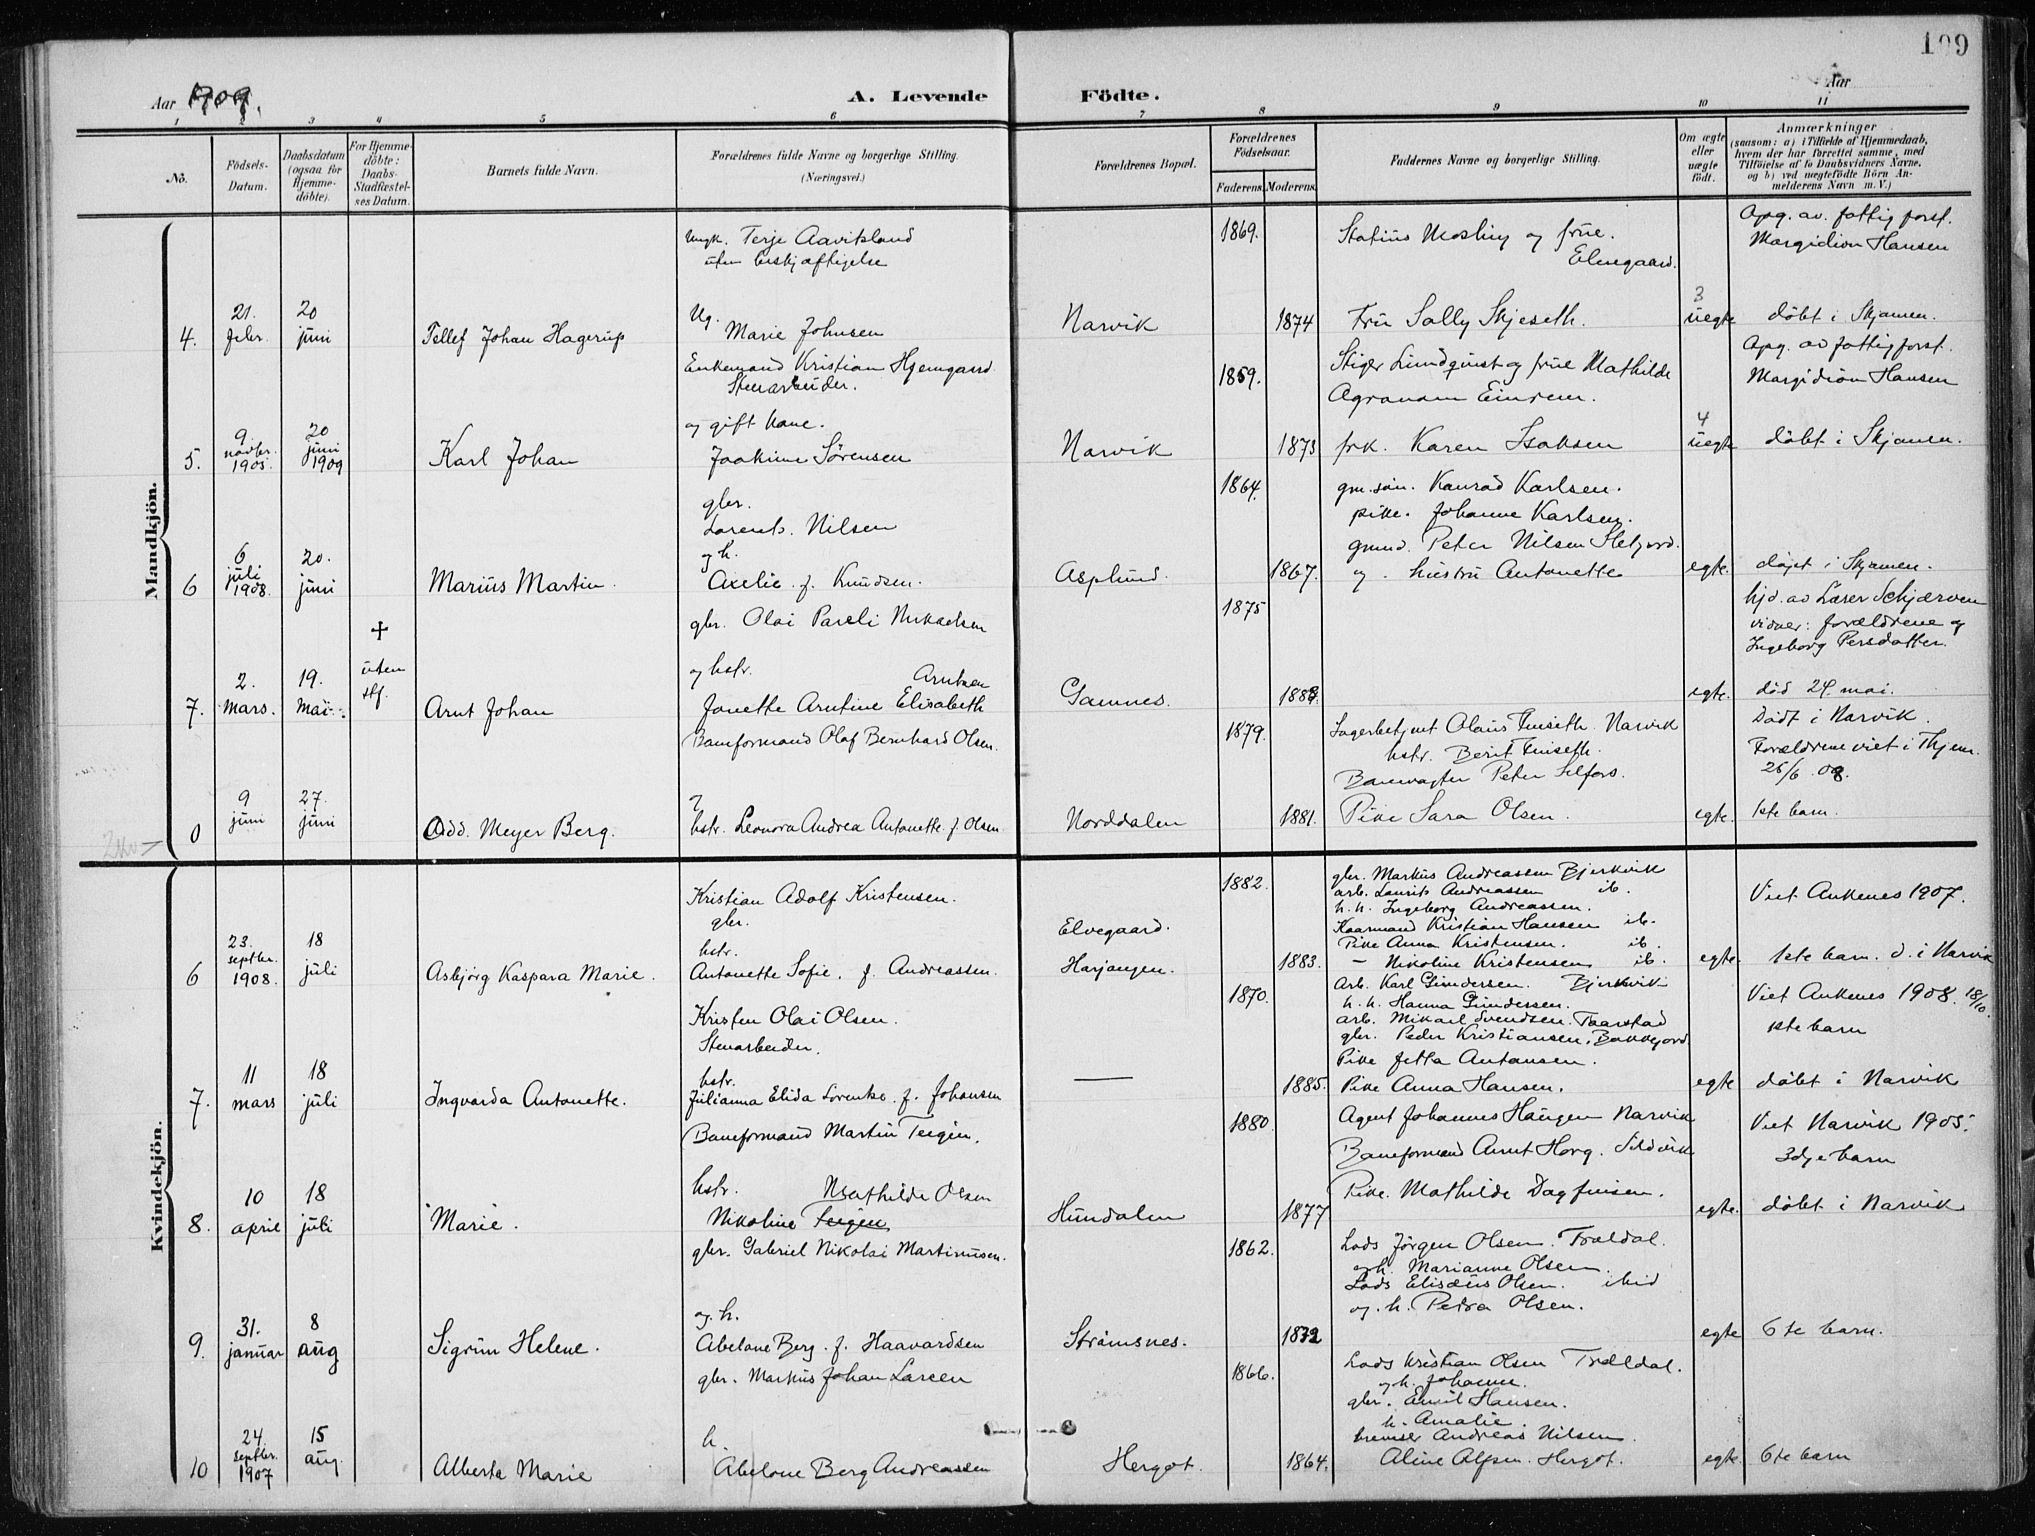 199
Aar 1909.
A. Levende Födte.
Aar
1 2 3 4 5 6 7 8 9 10 11
No.
Födsels-Datum.
Daabsdatum (ogsaa for Hjemme-döbte).
For Hjemme-döbte: Daabs-Stadfæstel-ses Datum.
Barnets fulde Navn.
Forældrenes fulde Navne og borgerlige Stilling.
(Næringsvei.)
Forældrenes Bopæl.
Forældrenes Födselsaar.
Faderens. Moderens.
Faddernes Navne og borgerlige Stilling.
Om ægte eller uægte födt.
Anmærkninger
(saasom: a) i Tilfælde af Hjemmedaab, hvem der har forrettet samme, med Tilföielse af to Daabsvidners Navne, og b) ved uægtefödte Börn An-melderens Navn m. V.)
Mandkjön.
4.
21. febr.
20 juni
Tellef Johan Hagerup
Ungk. Terje Aavitsland
uten beskjæftigelse
Ug.
Marie Johnsen
Narvik
1869.
1874
Statius Mosling og frue.
Elvegaard.
Fru Sally Skjeseth.
3
uegte
Apg. av. fattigforst.
Margidion Hansen
döbt i Skjomen.
5.
9 novbr. 1905.
20 juni 1909
Karl Johan
Enkemand Kristian Hjemgaard
Stenarbeider.
og gift kone.
Joakime Sörensen
Narvik
1859.
1873
Stiger Lundquist og frue Mathilde
Agronom Einrem.
frk. Karen Isaksen
4
uegte
Apg. av fattigforst.
Margidion Hansen
döbt i Skjomen.
6
6 juli 1908.
20. juni
Marius Martin.
gbr.
Lorents. Nilsen
og h.
Axelie. f. Knudsen.
Asplund.
1864.
1867.
gm. sön. Konrad Karlsen.
pike. Johanne Karlsen.
gmd. Peter Nilsen
og. hustru Antonette
egte.
döpt i Skjomen.
7.
2. mars.
19. mai.
✝
uten stf.
Arnt Johan
gbr. Olai Pareli Mikaelsen
og hstr.
Arntsen
Jonette Arntine Elisabeth
Gamnes.
1875
egte.
hjd. av Lærer Schjærven
vidner: forældrene og
Ingeborg Persdatter.
död 24. mai.
0
9 juni
27. juni
Odd. Meyer Berg.
Baneformand Olaf Bernhard Olsen.
og
hstr. Leonora Andrea Antonette. f. Olsen
Norddalen
1879.
1881.
Lagerbetjent Olaus Narvik
hstr. Berit
Banevagter Peter Selfors.
Pike Sara Olsen.
egte.
Dödt i Narvik.
Forældrene viet i Thjem
26/6 08.
1ste barn.
Kvindekjön.
6
23. septbr. 1908.
18 juli
Asbjörg Kaspara Marie.
Kristian Adolf Kristensen.
gbr.
hstr.
Antonette Sofie. f. Andreassen.
Elvegaard.
Harjangen.
1882.
1883.
gbr. Markus Andreassen Bjerkvik
arb. Laurits Andreassen ib.
h. h. Ingeborg Andreassen.
Kaarmand Kristian Hansen ib.
Pike Anna Kristensen. ib.
— Nikoline Kristensen ib.
egte.
Viet Ankenes 1907.
1ste barn. d. i Narvik
7.
11 mars
18 juli
Ingvarda Antonette.
Kristen Olai Olsen.
Stenarbeider.
hstr.
Julianna Elida Lorentse. f. Johansen
—
1870.
1885.
Arb. Karl Gundersen. Bjerkvik
h. h. Hanna Gundersen.
arb. Mikael Svendsen. Taarstad
gbr. Peder Kristiansen. Bakkejord.
Pike Jetta Antonsen.
Pike Anna Hansen.
egte
Viet Ankenes 1908. 18/10.
1ste barn
döbt i Narvik
8.
10 april
18 juli
Marie.
Baneformand Martin Teigen.
hstr. Mathilde Olsen
Nikoline Teigen
Hundalen
1880.
1877
Agent Johannes Haugen Narvik
Baneformand Arnt Horg. Sildvik
Pike. Mathilde Dagfinsen.
egte.
Viet Narvik 1905.
3dje barn
döbt i Narvik
9.
31. januar
8 aug
Sigrun Helene.
gbr. Gabriel Nikolai Martinusen.
og. h.
Abelone Berg. f. Haavardsen
Strömsnes.
1862.
1872
Lods Jörgen Olsen. Traldal.
og h. Marianne Olsen.
Lods Elisæus Olsen. ibid
og. h. Petra Olsen.
egte
6te barn.
10
24. septbr. 1907
15 aug.
Alberta Marie
gbr. Markus Johan Larsen
h.
Abelone Berg Andreassen
Hergot.
1866.
1864.
Lods Kristian Olsen Traldal.
og h. Johanne.
gbr. Emil Hansen.
h. Amalie.
bremser Andreas Nilsen.
Aline Alfsen. Hergot.
egte.
6te barn